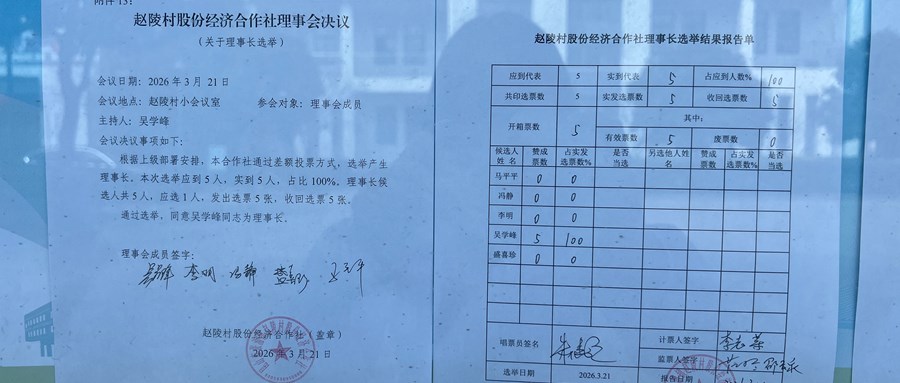 附件13：
赵陵村股份经济合作社理事会决议
（关于理事长选举）
会议日期：2026年3月21日
会议地点：赵陵村小会议室 参会对象：理事会成员
主持人：吴学峰
会议决议事项如下：
根据上级部署安排，本合作社通过差额投票方式，选举产生
理事长。本次选举应到5人，实到5人，占比100%。理事长候
选人共5人，应选1人，发出选票5张，收回选票5张。
通过选举，同意吴学峰同志为理事长。
理事会成员签字：
李明 冯静
赵陵村股份经济合作社（盖章）
2026年3月21日
赵陵村股份经济合作社理事长选举结果报告单
应到代表 5 实到代表 5 占应到人数% 100
共印选票数 5 实发选票数 5 收回选票数 5
开箱票数 5 其中：
有效票数 5 废票数 0
候选人姓名 赞成票数 占实发选票数% 是否当选 另选他人姓名 赞成票数 占实发选票数% 是否当选
马平平 0 0
冯静 0 0
李明 0 0
吴学峰 5 100
盛喜珍 0 0
唱票员签名 计票人签字
监票人签字
选举日期 2026.3.21 报告日期